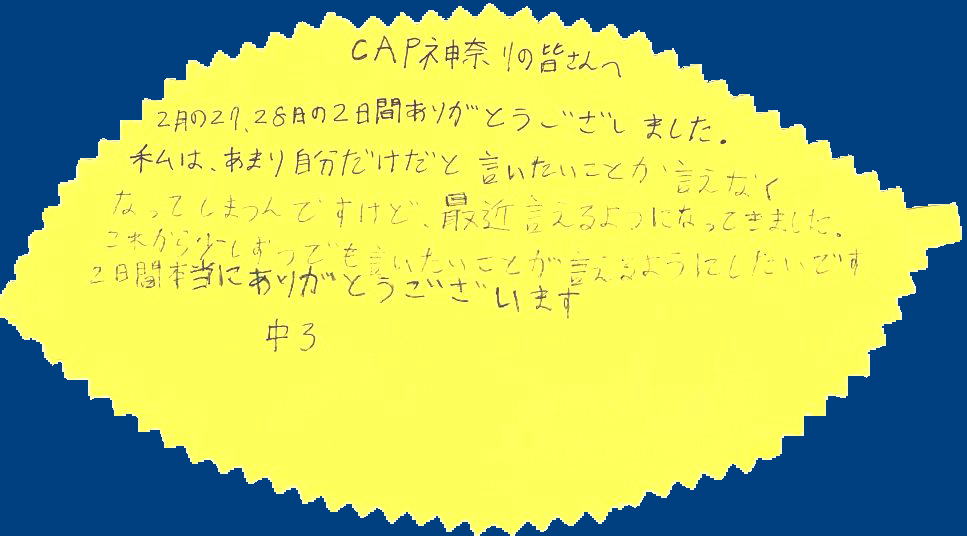 CAP神奈川の皆さんへ
2月の27,28月の2日間ありがとうござしました。
私は、あまり自分だけだと言いたいことが言えなく
なってしまつんですけど、最近言えるよつになってきました。
これから少しずつでも言いたいことが言えるようにしたいです
2日間本当にありがとうございます
中3